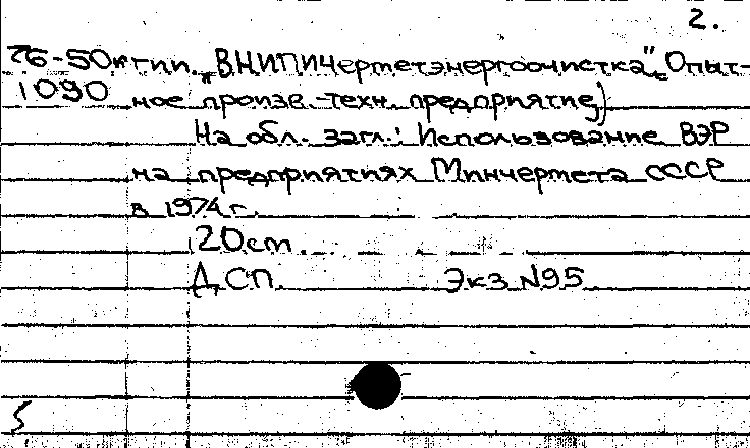 2.
76-50ктип. „ВНИПИчерметэнергоочистка", Опыт-
1090 ное произв.-техн. предприятие)
На обл. загл.: Использование ВЭР
на предприятиях Минчермета СССР
в 1974 г.
20 см.
ДСП. Экз N95